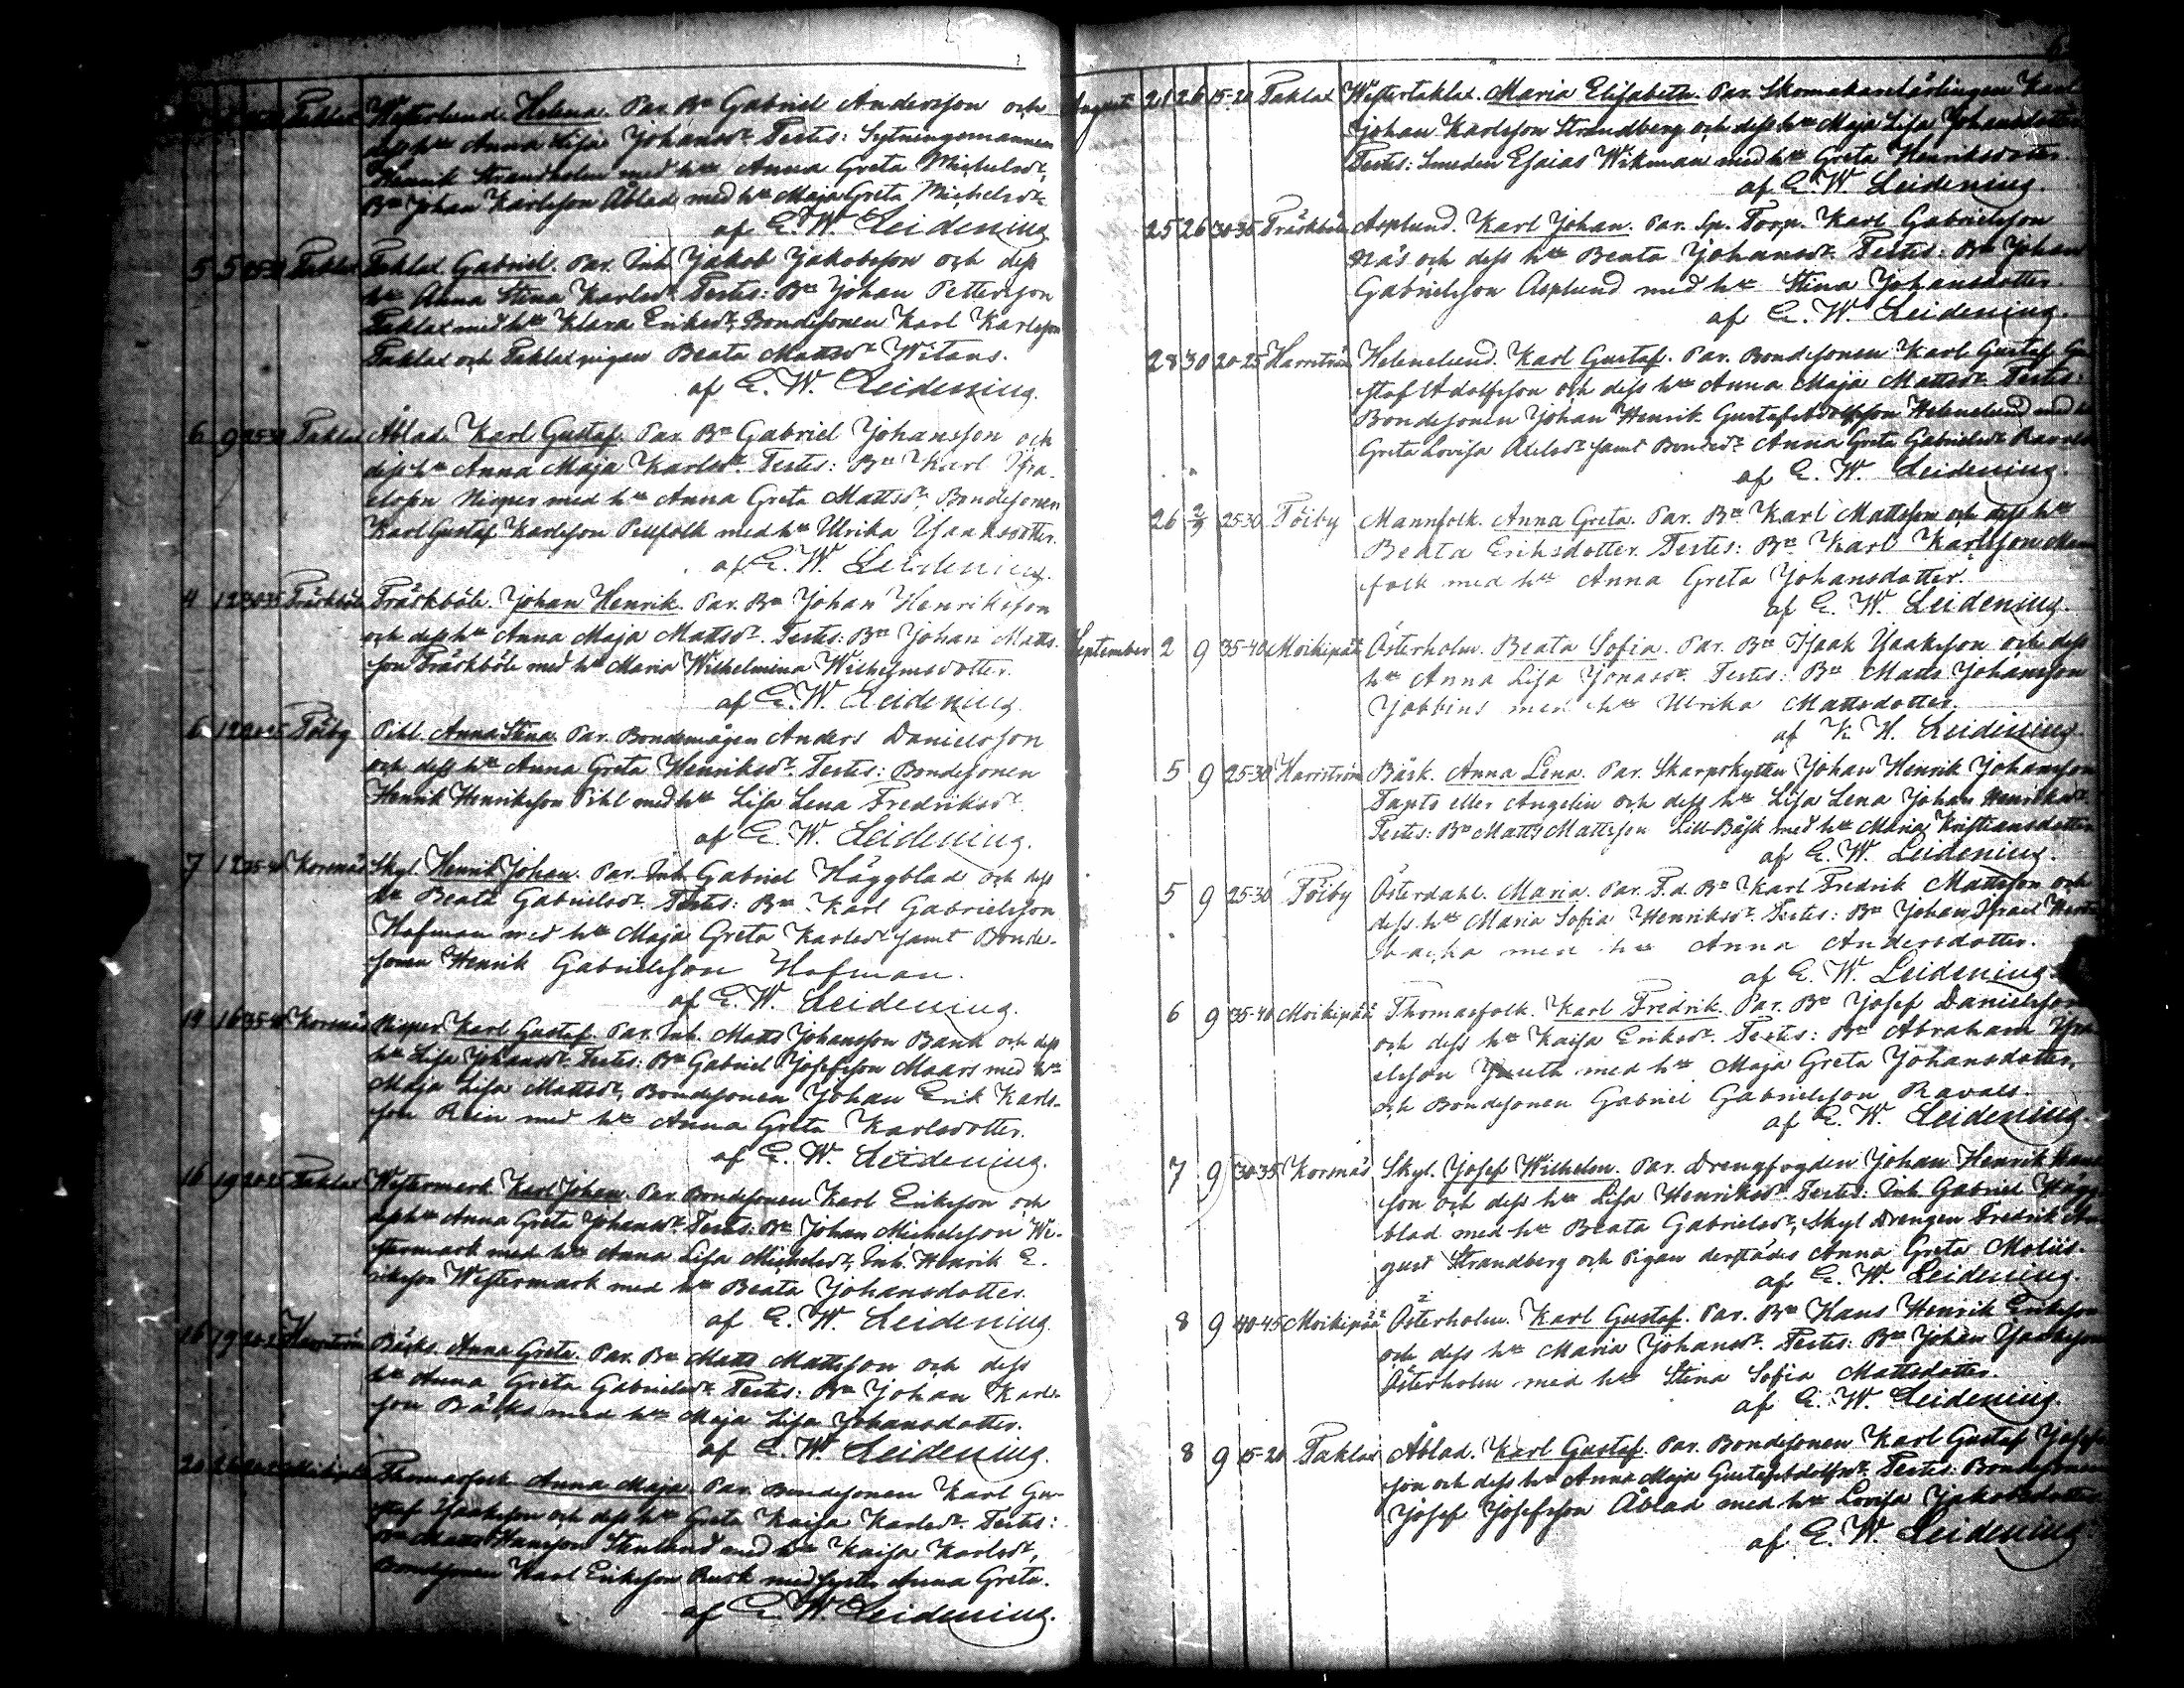 Taklax Westerlund. Helena. Par. Bn Gabriel Andersson och
dess hu Anna Lisa Johansdr. Testes: Sytningsmannen
Henrik Strandholm med hu Anna Greta Michelsdr,
Bn Johan Karlsson Åblad med hu Maja Greta Michelsdr
af E. W. Leidenius.
5 5 Taklax Taklax. Gabriel. Par. Inh. Jakob Jakobsson och dess
hu Anna Stina Karlsdr. Testes: Bn Johan Pettersson
Taklax med hu Klara Eriksdr, Bondesonen Karl Karlsson
Taklax och Taklax pigan Beata Mattsdr Witans.
af E. W. Leidenius.
6 9 Taklax Åblad. Karl Gustaf. Par. Bn Gabriel Johansson och
dess hu Anna Maja Karlsdr. Testes: Bn Karl Isra-
elsson Nisper med hu Anna Greta Mattsdr, Bondesonen
Karl Gustaf Karlsson Pellfolk med hu Ulrika Isaaksdotter.
af E. W. Leidenius.
4 12 30-35 Träskböle Träskböle. Johan Henrik. Par. Bn Johan Henriksson
och dess hu Anna Maja Mattsdr. Testes: Bn Johan Matts-
son Träskböle med hu Maria Wilhelmina Wilhelmsdotter.
af E. W. Leidenius.
6 12 Töiby Pihl. Anna Stina. Par. Bondemågen Anders Danielsson
och dess hu Anna Greta Henriksdr. Testes: Bondesonen
Henrik Henriksson Pihl med hu Lisa Lena Fredriksdr.
af E. W. Leidenius.
7 12 35-40 Korsnäs Skyl. Henrik Johan. Par. Inh. Gabriel Häggblad och dess
hu Beata Gabrielsdr. Testes: Bn Karl Gabrielsson
Hofman med hu Maja Greta Karlsdr samt Bonde-
sonen Henrik Gabrielsson Hofman.
af E. W. Leidenius.
14 16 35-40 Korsnäs Nisper. Karl Gustaf. Par. Inh. Matts Johansson Bank och dess
hu Lisa Johansdr. Testes: Bn Gabriel Josefsson Maars med hu
Maja Lisa Mattsdr, Bondesonen Johan Erik Karls-
son Rein med hu Anna Greta Karlsdotter.
af E. W. Leidenius.
16 19 20-25 Taklax Westermark. Karl Johan. Par. Bondesonen Karl Eriksson och
dess hu Anna Greta Johansdr. Testes: Bn Johan Michelsson We-
stermark med hu Anna Lisa Michelsdr, Inh. Henrik E-
riksson Westermark med hu Beata Johansdotter.
af E. W. Leidenius.
16 19 Harrström Bäcks. Anna Greta. Par. Bn Matts Mattsson och dess
hu Anna Greta Gabrielsdr. Testes: Bn Johan Karls-
son Bäcks med hu Maja Lisa Johansdotter.
af E. W. Leidenius.
20 26 Moikipää Thomasfolk. Anna Maja. Par. Bondesonen Karl Gu-
staf Isaaksson och dess hu Greta Kaisa Karlsdr. Testes:
Bn Matts Hansson Stenlund med hu Kaisa Karlsdr,
Bondesonen Karl Eriksson Rusk med syster Anna Greta.
af E. W. Leidenius.
Augusti 21 26 15-20 Taklax Westertaklax. Maria Elisabeth. Par. Skomakarelärlingen Karl
Johan Karlsson Strandberg och dess hu Maja Lisa Johansdotter
Testes: Smeden Esaias Wikman med hu Greta Henriksdotter.
af E. W. Leidenius.
25 26 30-35 Träskböle Asplund. Karl Johan. Par. Sp. Torp. Karl Gabrielsson
Näs och dess hu Beata Johansdr. Testes: Bn Johan
Gabrielsson Asplund med hu Stina Johansdotter.
af E. W. Leidenius.
28 30 20-25 Harrström Helenelund. Karl Gustaf. Par. Bondesonen Karl Gustaf Gu-
staf Adolfsson och dess hu Anna Maja Mattsdr. Testes:
Bondesonen Johan Henrik Gustafadolfsson Helenelund med hu
Greta Lovisa Axelsdr samt Bondedr Anna Greta Gabrielsdr Ravals
af E. W. Leidenius.
26 2/9 25-30 Töiby Mannfolk. Anna Greta. Par. Bn Karl Mattsson och dess hu
Beata Eriksdotter. Testes: Bn Karl Karlsson Man
folk med hu Anna Greta Johansdotter.
af E. W. Leidenius.
September 2 9 35-40 Moikipää Österholm. Beata Sofia. Par. Bn Isaak Isaaksson och dess
hu Anna Lisa Jonasdr. Testes: Bn Matts Johansson
Jobbins med hu Ulrika Mattsdotter.
af K. H. Leidenius.
5 9 25-30 Harrström Bäck. Anna Lena. Par. Skarpskytten Johan Henrik Johansson
Tapto eller Angelin och dess hu Lisa Lena Johan Henriksdr.
Testes: Bn Matts Mattsson Lill-Bäck med hu Maria Kristiansdotter
af E. W. Leidenius.
5 9 25-30 Töiby Österdahl. Maria. Par. F.d. Bn Karl Fredrik Mattsson och
dess hu Maria Sofia Henriksdr. Testes: Bn Johan Israel
backa med hu Anna Andersdotter.
af E. W. Leidenius.
6 9 35-40 Moikipää Thomasfolk. Karl Fredrik. Par. Bn Josef Danielsson
och dess hu Kaisa Eriksdr. Testes: Bn Abraham Isra-
elsson Juth med hu Maja Greta Johansdotter,
och Bondesonen Gabriel Gabrielsson Ravals.
af E. W. Leidenius.
7 9 30-35 Korsnäs Skyl. Josef Wilhelm. Par. Drengfogden Johan Henrik Hans-
son och dess hu Lisa Henriksdr. Testes: Inh. Gabriel Hägg-
blad med hu Beata Gabrielsdr, Skyl Drengen Fredrik Au-
gust Strandberg och Pigan derstädes Anna Greta Moliis.
af E. W. Leidenius.
8 9 40-45 Moikipää Österholm. Karl Gustaf. Par. Bn Hans Henrik Eriksson
och dess hu Maria Johansdr. Testes: Bn Johan Isaaksson
Österholm med hu Stina Sofia Mattsdotter.
af E. W. Leidenius.
8 9 15-20 Taklax Åblad. Karl Gustaf. Par. Bondesonen Karl Gustaf Josefs-
son och dess hu Anna Maja Gustafadolfsdr. Testes: Bondesonen
Josef Josefsson Åblad med hu Lovisa Jakobsdotter
af E. W. Leidenius